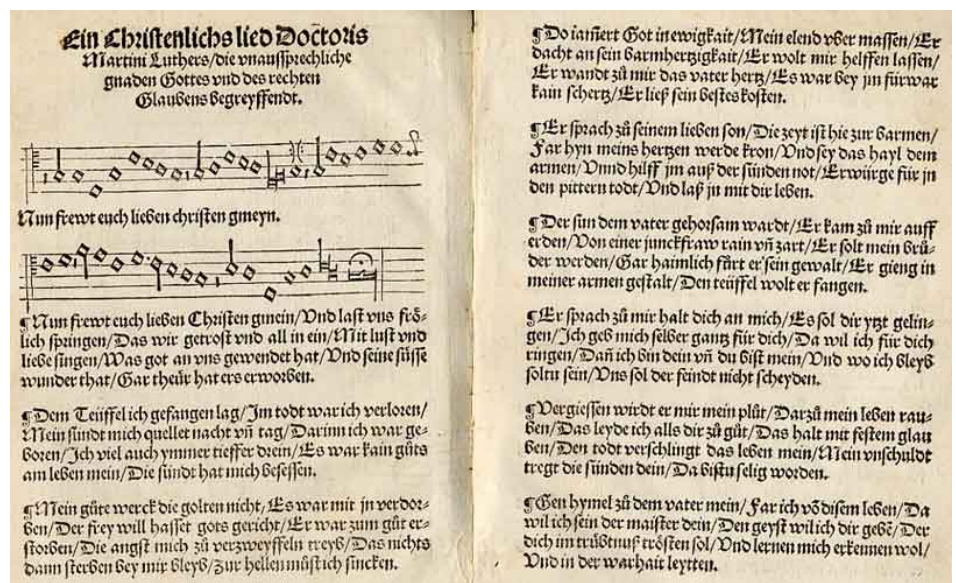 Ein Christenlichs lied Doctoris
Martini Luthers/die vnaussprechliche
gnaden Gottes vnd des rechten
Glaubens begreyffendt.
Nun frewt euch lieben christen gmeyn.
¶Nun frewt euch lieben Christen gmein/Vnd last vns frö-
lich springen/Das wir getrost vnd all in ein/Mit lust vnd
liebe singen/Was got an vns gewendet hat/Vnd seine süsse
wunder that/Gar theür hat ers erworben.
¶Dem Teüffel ich gefangen lag/Im todt war ich verloren/
Mein sündt mich quellet nacht vñ tag/Darinn ich war ge-
boren/Ich viel auch ymmer tieffer drein/Es war kain güts
am leben mein/Die sündt hat mich besessen.
¶Mein güte werck die golten nicht/Es war mit jn verdor-
ben/Der frey will hasset gots gericht/Er war zum güt er-
storben/Die angst mich zü verzweyffeln treyb/Das nichts
dann sterben bey mir bleyb/Zur hellen müst ich sincken.
¶Do iam̃ert Got in ewigkait/Mein elend vber massen/Er
dacht an sein barmhertzigkait/Er wolt mir helffen lassen/
Er wandt zů mir das vater hertz/Es war bey jm fürwar
kain schertz/Er ließ sein bestes kosten.
¶Er sprach zů seinem lieben son/Die zeyt ist hie zur barmen/
Far hyn meins hertzen werde kron/Vnd sey das hayl dem
armen/Vnnd hilff jm auß der sünden not/Erwürge für jn
den pittern todt/Vnd laß jn mit dir leben.
¶Der sun dem vater gehorsam wardt/Er kam zů mir auff
erden/Von einer junckfraw rain vñ zart/Er solt mein brů-
der werden/Gar haimlich fůrt er sein gewalt/Er gieng in
meiner armen gestalt/Den teüffel wolt er fangen.
¶Er sprach zů mir halt dich an mich/Es sol dir ytzt gelin-
gen/Ich geb mich selber gantz für dich/Da wil ich für dich
ringen/Dañ ich bin dein vñ du bist mein/Vnd wo ich bleyb
soltu sein/Vns sol der feindt nicht scheyden.
¶Vergiessen wirdt er mir mein plůt/Darzů mein leben rau-
ben/Das leyde ich als dir zů gůt/Das halt mit festem glau
ben/Den todt verschlingt das leben mein/Mein vnschuldt
tregt die sünden dein/Da bistu selig worden.
¶Gen hymel zů dem vater mein/Far ich võ disem leben/Da
wil ich sein der maister dein/Den geyst wil ich dir gebẽ/Der
dich im trübtnuß trösten sol/Vnd lernen mich erkennen wol/
Vnd in der warhait leytten.